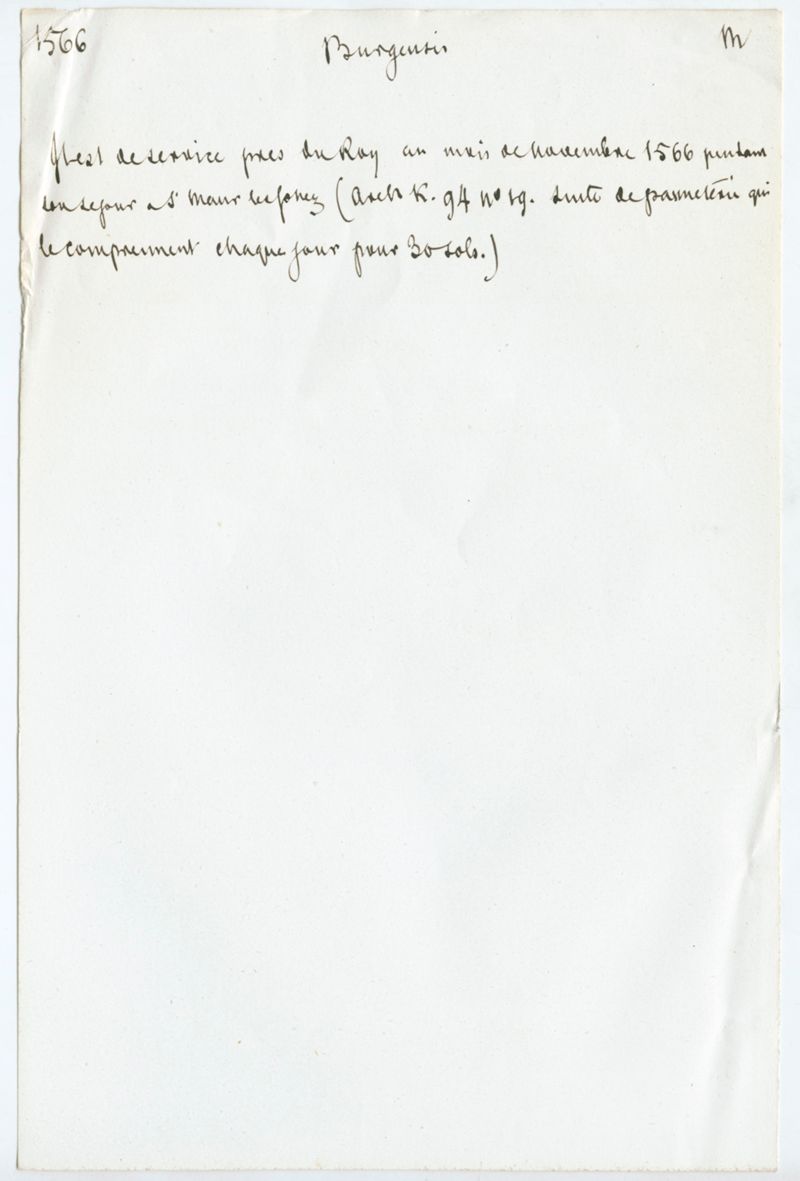 1566 Burgensis M
Il est de service pres du Roy au mois de Novembre 1566 pendant
son sejour a St Maur les fossez (Arch K. 94 no 19. suite de panneterie qui
le comprennent chaque jour pour 30 sols.)